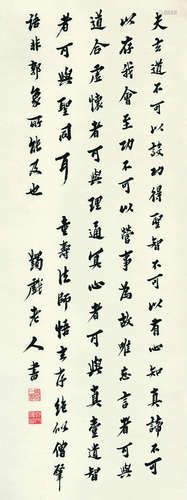 夫玄道不可以設功得聖智不可以有心知真諦不可
以存我會至功不可以營事為故唯忘言者可與
道合虛懷者可與理通冥心者可與真壹遺智
者可與聖同耳 童壽法師悟玄序絕似僧肇
語非郭象所能及也
蠲戲老人書